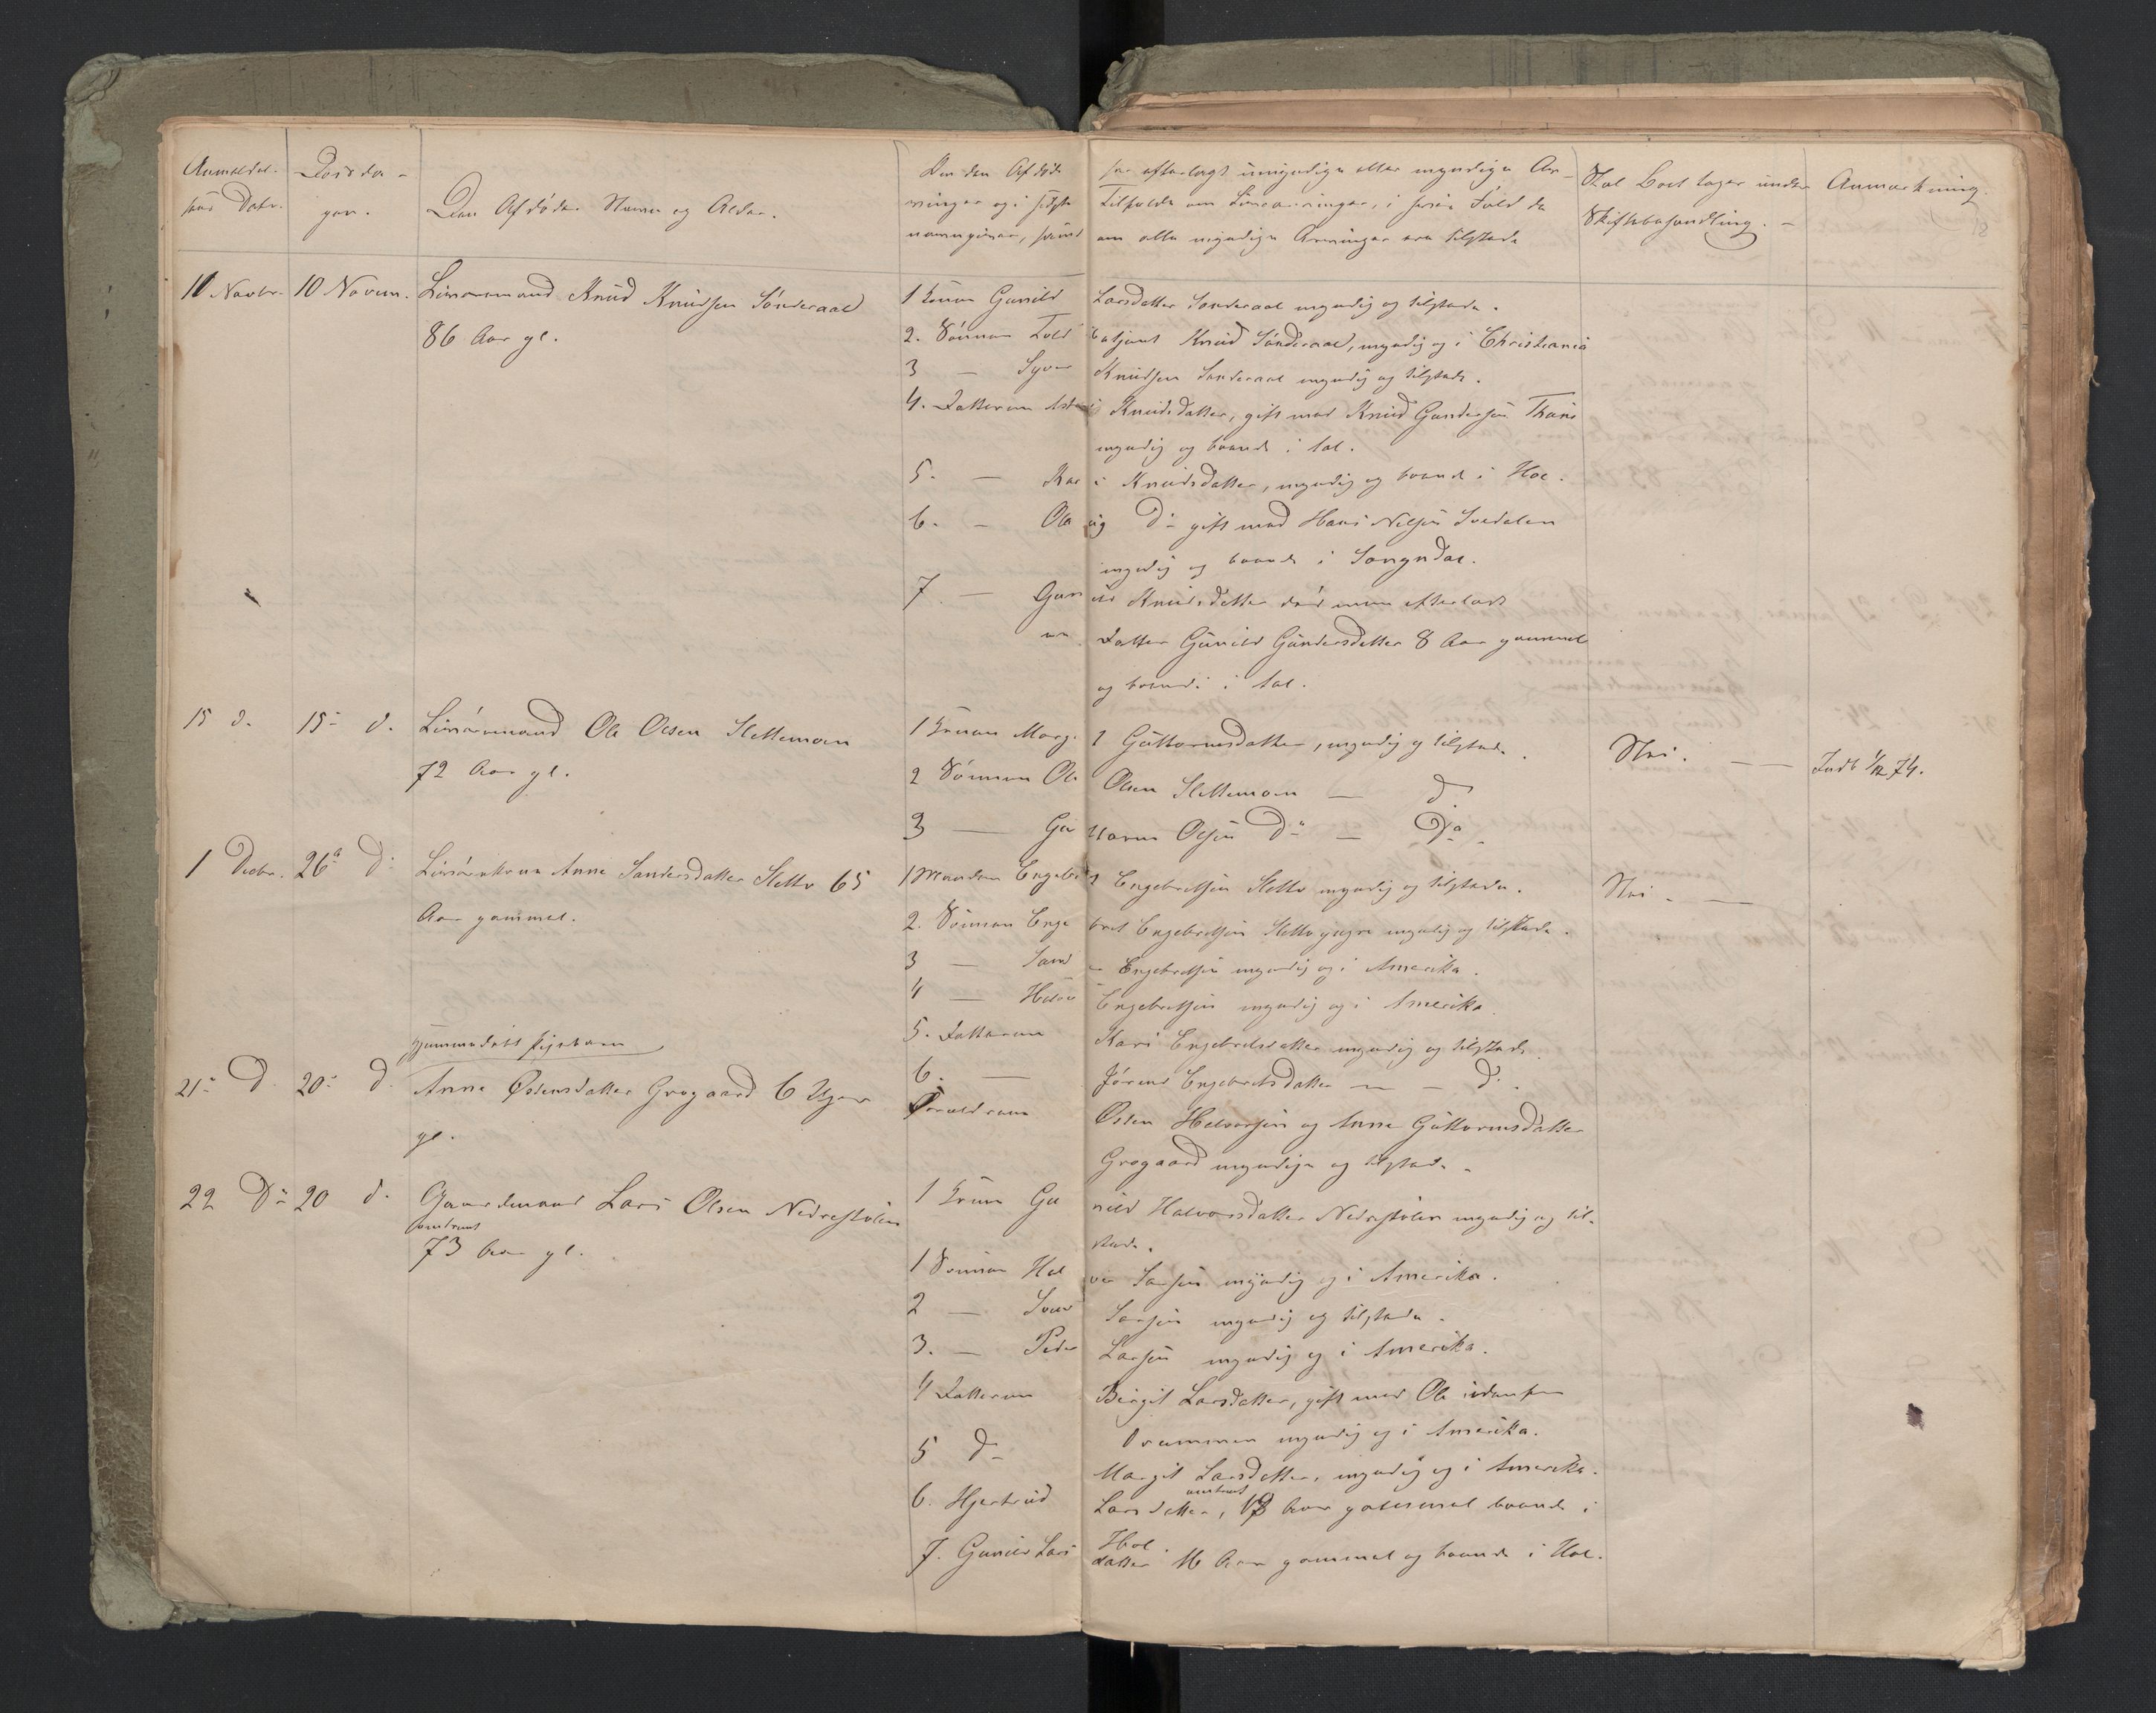 Anmeldel- Dødsda-
sens Dato. gen. Den Afdødes Navn og Alder.
Om den Afdøde har efterladt umyndige eller myndige Ar-
vinger og i sidste Tilfælde om Livsarvinger, i saadan Fald da
om alle myndige Arvinger ere tilstede
Skal Boet tages under
Skiftebehandling. -
Anmærkning.
11 Novbr. 10 Novem. Livøremand Knud Knudsen Sønderaal
86 Aar gl.
1 Konen Gunild Larsdatter Sønderaal myndig og tilstede.
2. Sønnen Toldbetjent Knud Sønderaal, myndig og i Christiania
3 — Syver Knudsen Sønderaal myndig og tilstede.
4. Datteren Knudsdatter, gift med Knud Gundersen
myndig og boende i Aal.
5. — Kari Knudsdatter, myndig og boende i Hol.
6. - d- gift med Hans Nilsen
myndig og boende i Songndal.
7. — Gunild Knudsdatter død men efterladt
en Datter Gunild Gundersdatter 8 Aar gammel
og boende i Aal.
15 d. 15- d. Livøremand Ole Olsen Slettemoen
72 Aar gl.
1 Konen Margit Guttormsdatter, myndig og tilstede.
2 Sønnen Ole Olsen Slettemoen — d
3 — Guttorm Olsen Do — Do -
Nei. — — Indb 1/12 74.
1 Decbr. 26 d- Livørekone Anne Sandersdatter Sletto 65
Aar gammel.
1 Manden Engebret Engebretsen Sletto myndig og tilstede.
2. Sønnen Engebret Engebretsen Sletto yngre myndig og tilstede.
3 — Engebretsen myndig og i Amerika.
4 — Engebretsen myndig og i Amerika.
5. Datteren Kari Engebretsdatter myndig og tilstede.
6. — Jørend Engebretsdatter — - d- .
Nei - —
hjemmedøbt Pigebarn
21- d 20- d Anne Østensdatter Grøgaard 6 Uger
gl.
Forældrene Østen Helvorsen og Anne Guttormsdatter
Grøgaard myndige og tilstede -
22 Do 20 d- Gaardmand Lars Olsen Nedrestølen
omtrent
73 Aar gl.
1 Konen Gunild Halvorsdatter Nedrestølen myndig og til-
stede.
1 Sønnen Larsen myndig og i Amerika.
2 — Larsen myndig og tilstede.
3. — Peder Larsen myndig og i Amerika.
4 Datteren Birgit Larsdatter, gift med Ole
myndig og i Amerika.
5 d- Margit Larsdatter, myndig og i Amerika.
6. Hjertrud Larsdatter, omtrent Aar gammel boende i
Hol.
7. Gunild Larsdatter 16 Aar gammel og boende i Hol.